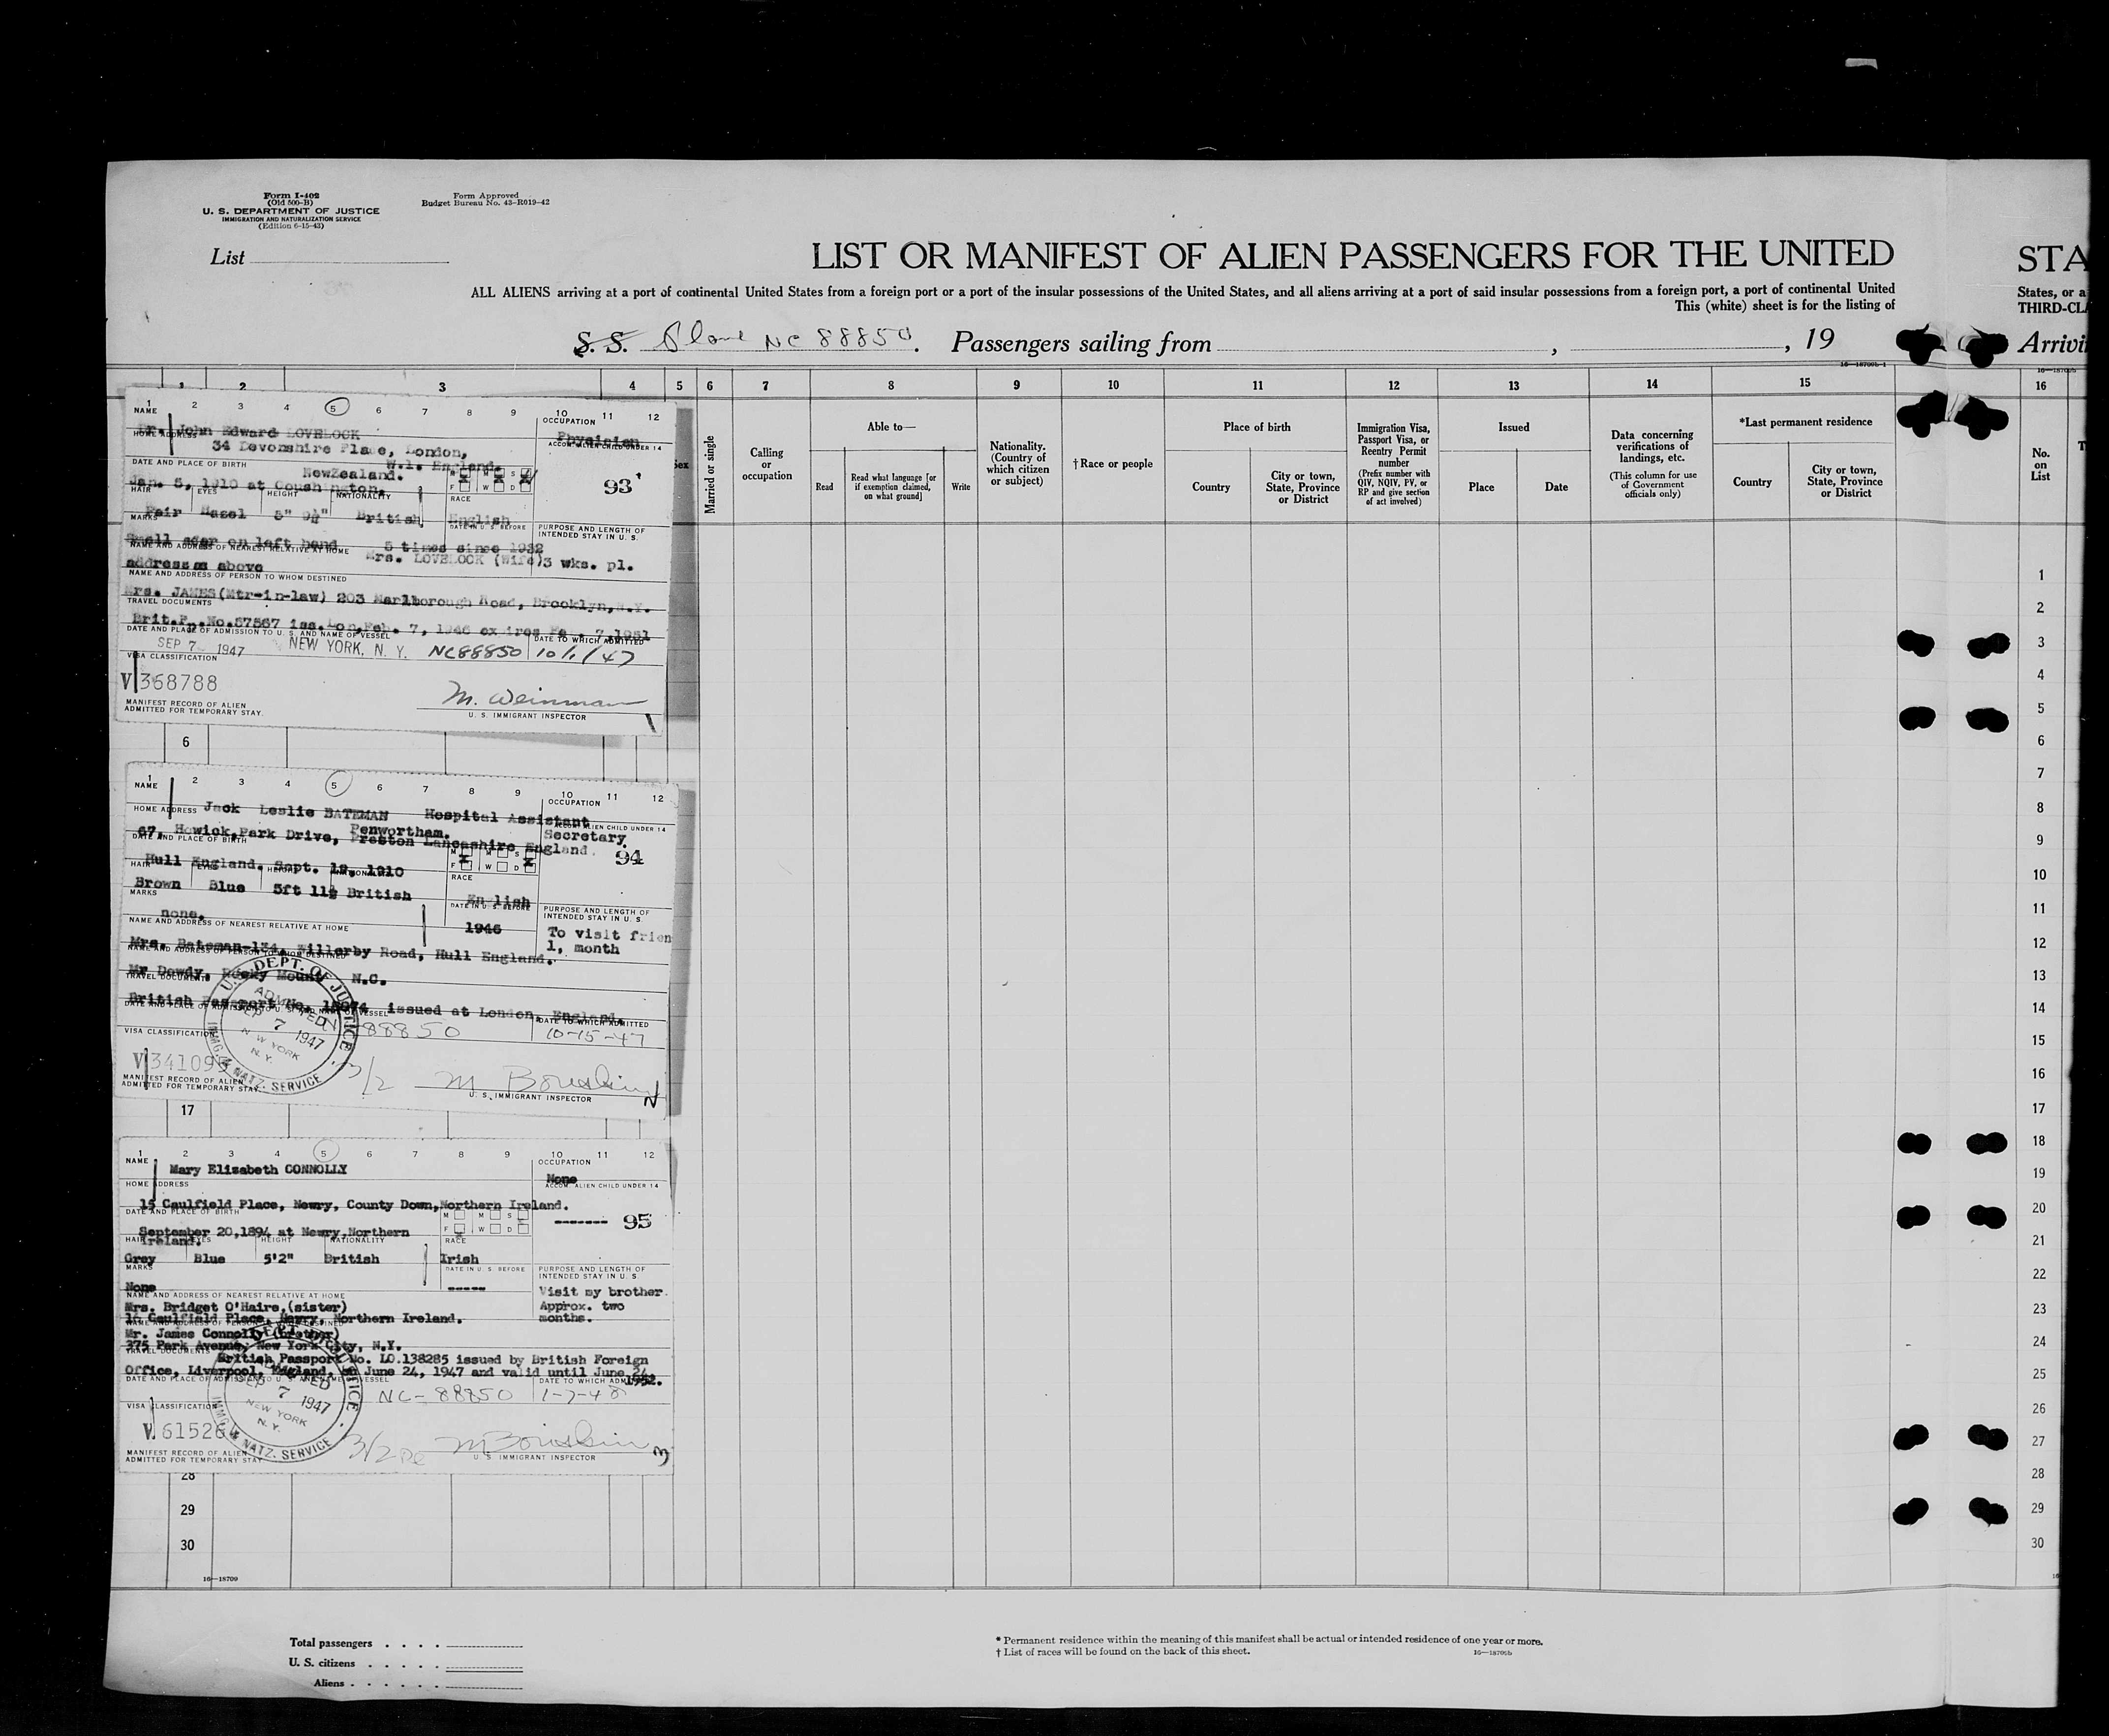 Form I-402
(Old 500-B)
U. S. DEPARTMENT OF JUSTICE
IMMIGRATION AND NATURALIZATION SERVICE
(Edition 6-15-43)
Form Approved
Budget Bureau No. 43-R019-42
List
LIST OR MANIFEST OF ALIEN PASSENGERS FOR THE UNITED
STA
ALL ALIENS arriving at a port of continental United States from a foreign port or a port of the insular possessions of the United States, and all aliens arriving at a port of said insular possessions from a foreign port, a port of continental United
States, or a
This (white) sheet is for the listing of
THIRD-CLA
S. S. Plane NC 88850. Passengers sailing from , , 19
Arrivi
16—18709b-1
1 2 3 4 5 6 7 8 9 10 11 12 13 14 15 16
Sex
Married or single
Calling or occupation
Able to—
Read
Read what language [or if exemption claimed, on what ground]
Write
Nationality. (Country of which citizen or subject)
†Race or people
Place of birth
Country
City or town, State, Province or District
Immigration Visa, Passport Visa, or Reentry Permit number
(Prefix number with QIV, NQIV, PV, or RP and give section of act involved)
Issued
Place
Date
Data concerning verifications of landings, etc.
(This column for use of Government officials only)
*Last permanent residence
Country
City or town, State, Province or District
No. on List
1 2 3 4 5 6 7 8 9 10 11 12
NAME
OCCUPATION
Dr. John Edward LOVELOCK
Physician
HOME ADDRESS
ACCOM. ALIEN CHILD UNDER 14
34 Devonshire Place, London,
W.1. England.
DATE AND PLACE OF BIRTH
NewZealand.
M M S
F W D
93
Jan. 5, 1910 at Coushington,
HAIR EYES HEIGHT NATIONALITY
RACE
Fair Hazel 5" 9½" British English
MARKS
DATE IN U. S. BEFORE
PURPOSE AND LENGTH OF INTENDED STAY IN U. S.
Small scar on left hand 5 times since 1932
NAME AND ADDRESS OF NEAREST RELATIVE AT HOME
Mrs. LOVELOCK (Wife) 3 wks. pl.
address as above
NAME AND ADDRESS OF PERSON TO WHOM DESTINED
Mrs. JAMES(Mtr-in-law) 203 Marlborough Road, Brooklyn,N.Y.
TRAVEL DOCUMENTS
Brit.P..No.67567 iss.Lon.Feb. 7, 1946 expires Fe . 7,1951
DATE AND PLACE OF ADMISSION TO U. S. AND NAME OF VESSEL
DATE TO WHICH ADMITTED
SEP 7 1947 NEW YORK, N. Y. NC88850 10/1/47
VISA CLASSIFICATION
V 368788
M. Weinman
MANIFEST RECORD OF ALIEN
ADMITTED FOR TEMPORARY STAY.
U. S. IMMIGRANT INSPECTOR
6
1 2 3 4 5 6 7 8 9 10 11 12
NAME
OCCUPATION
HOME ADDRESS Jack Leslie BATEMAN Hospital Assistant
ACCOM. ALIEN CHILD UNDER 14
Secretary.
67, Howick,Park Drive, Penwortham.
Preston Lancashire England.
DATE AND PLACE OF BIRTH
M M S
F W D
94
Hull England. Sept. 19, 1910
HAIR EYES HEIGHT NATIONALITY
RACE
Brown Blue 5ft 11½ British English
MARKS
DATE IN U. S. BEFORE
PURPOSE AND LENGTH OF INTENDED STAY IN U. S.
none.
NAME AND ADDRESS OF NEAREST RELATIVE AT HOME
1946
To visit frien
1, month
Mrs. Bateman-134, Willerby Road, Hull England.
NAME AND ADDRESS OF PERSON TO WHOM DESTINED
Mr Dowdy, Rocky Mount N.C.
TRAVEL DOCUMENTS
British Passport No. issued at London, England.
DATE AND PLACE OF ADMISSION TO U. S. AND NAME OF VESSEL
DATE TO WHICH ADMITTED
88850 10-15-47
U. S. DEPT. OF JUSTICE
ADMITTED
SEP 7 1947
NEW YORK
N. Y.
IMMG. & NATZ. SERVICE
VISA CLASSIFICATION
V 341095
3/2
MANIFEST RECORD OF ALIEN
ADMITTED FOR TEMPORARY STAY.
U. S. IMMIGRANT INSPECTOR
17
1 2 3 4 5 6 7 8 9 10 11 12
NAME
OCCUPATION
Mary Elizabeth CONNOLLY
None
HOME ADDRESS
ACCOM. ALIEN CHILD UNDER 14
15 Caulfield Place, Newry, County Down,Northern Ireland.
DATE AND PLACE OF BIRTH
M M S
F W D
------- 95
September 20,1894 at Newry,Northern
Ireland.
HAIR EYES HEIGHT NATIONALITY
RACE
Grey Blue 5'2" British Irish
MARKS
DATE IN U. S. BEFORE
PURPOSE AND LENGTH OF INTENDED STAY IN U. S
None
-----
Visit my brother.
NAME AND ADDRESS OF NEAREST RELATIVE AT HOME
Approx. two
months.
Mrs. Bridget O'Haire,(sister)
Caulfield Place, Newry, Northern Ireland.
NAME AND ADDRESS OF PERSON TO WHOM DESTINED
Mr. James Connolly (brother)
375 Park Avenue, New York City, N.Y.
TRAVEL DOCUMENTS
British Passport No. LO.138285 issued by British Foreign
Office, Liverpool, England, on June 24, 1947 and valid until June 24
1952.
DATE AND PLACE OF ADMISSION TO U. S. AND NAME OF VESSEL
DATE TO WHICH ADMITTED
NC-88850 1-7-48
SEP 7 1947
NEW YORK
N. Y.
IMMG. & NATZ. SERVICE
VISA CLASSIFICATION
V 61526
3/2
MANIFEST RECORD OF ALIEN
ADMITTED FOR TEMPORARY STAY.
U. S. IMMIGRANT INSPECTOR
3
28
29
30
16—18709
1
2
3
4
5
6
7
8
9
10
11
12
13
14
15
16
17
18
19
20
21
22
23
24
25
26
27
28
29
30
Total passengers . . . .
U. S. citizens . . . . .
Aliens . . . . . .
* Permanent residence within the meaning of this manifest shall be actual or intended residence of one year or more.
† List of races will be found on the back of this sheet.
16—18709b